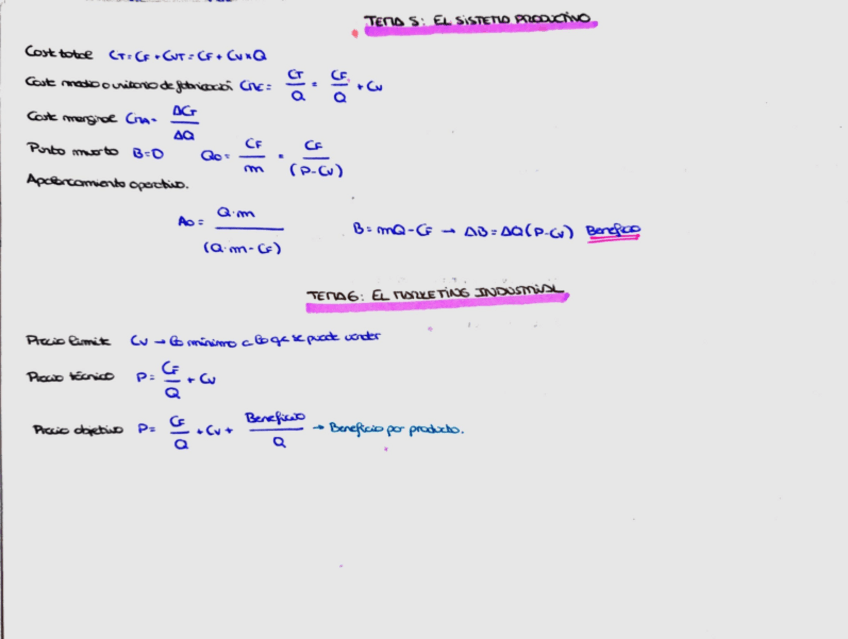 TEMA 5: EL SISTEMA PRODUCTIVO
Coste total CT = CF + CVT = CF + CV x Q
Coste medio o unitario de fabricación CMe = CT/Q = CF/Q + CV
Coste marginal CMA = ΔCT/ΔQ
Punto muerto B=0 Q0 = CF/m = CF/(P-CV)
Apalancamiento operativo.
A0 = Q·m/(Q·m-CF) B = mQ - CF → ΔB = ΔQ(P-CV) Beneficio
TEMA 6: EL MARKETING INDUSTRIAL
Precio límite CV → Lo mínimo a lo que se puede vender
Precio técnico P = CF/Q + CV
Precio objetivo P = CF/Q + CV + Beneficio/Q → Beneficio por producto.